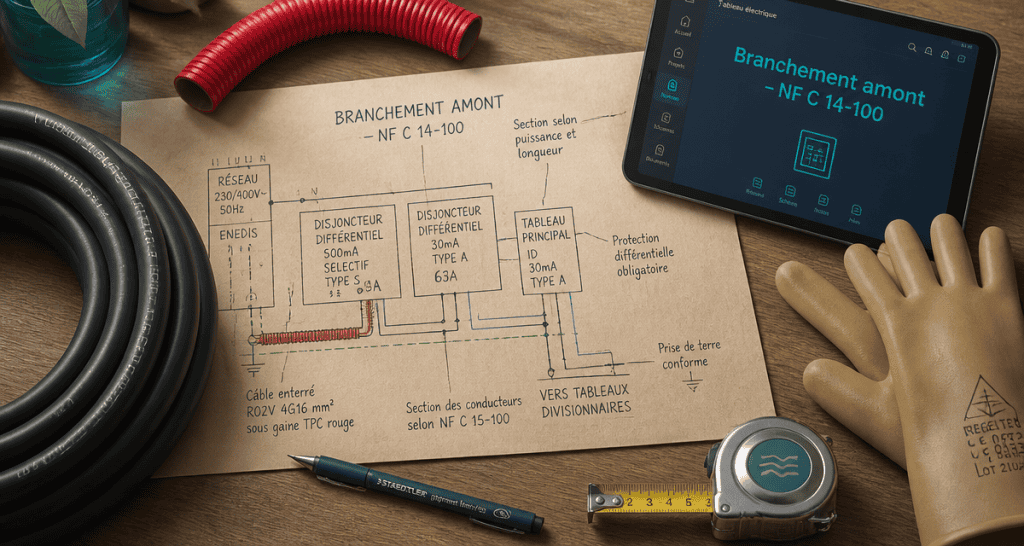 BRANCHEMENT AMONT
– NF C 14-100
Section selon
puissance et
longueur
RÉSEAU
230/400V~
50Hz
ENEDIS
N
DISJONCTEUR
DIFFÉRENTIEL
500mA
SELECTIF
TYPE S
DISJONCTEUR
DIFFÉRENTIEL
30mA
TYPE A
63A
TABLEAU
PRINCIPAL
ID
30mA
TYPE A
Protection
différentielle
obligatoire
Prise de terre
conforme
Câble enterré
RO2V 4G16 mm²
sous gaine TPC rouge
Section des conducteurs
selon NF C 15-100
VERS TABLEAUX
DIVISIONNAIRES
Tableau électrique
Accueil
Projets
Documents
Branchement amont
– NF C 14-100
STAEDTLER
2 3 4 5